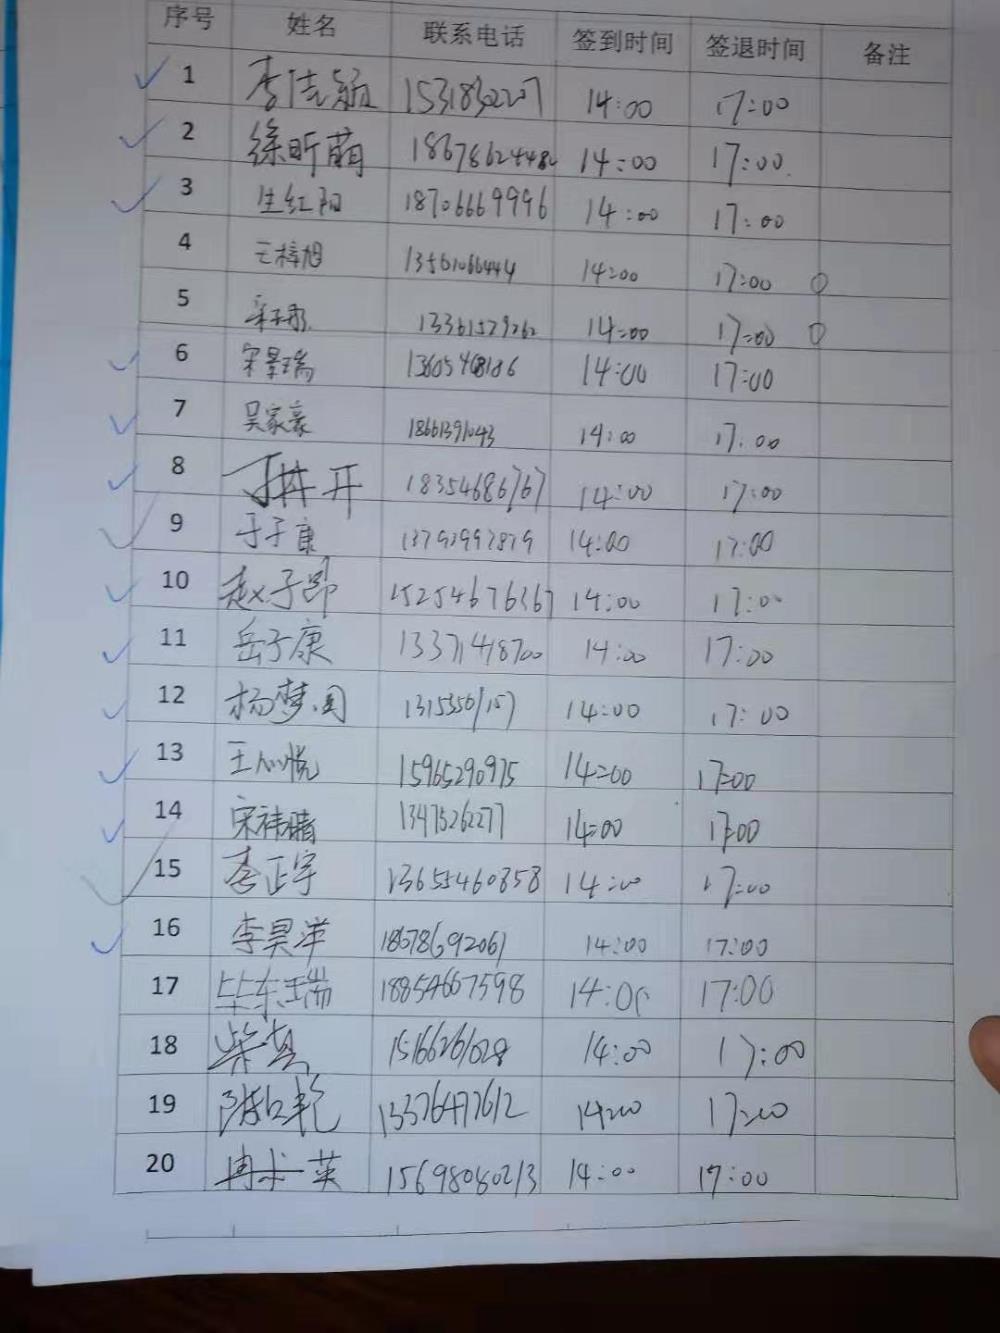 序号 姓名 联系电话 签到时间 签退时间 备注
1 李佳颖 15318302207 14:00 17:00
2 徐昕萌 18678624482 14:00 17:00
3 生红阳 18706669996 14:00 17:00
4 王梓旭 13561066444 14:00 17:00
5 13361529262 14:00 17:00
6 宋景瑞 13605468186 14:00 17:00
7 吴家豪 18661391043 14:00 17:00
8 开 18354686767 14:00 17:00
9 于子康 13792997879 14:00 17:00
10 赵子昂 15254676367 14:00 17:00
11 岳子康 13371418700 14:00 17:00
12 杨梦园 14:00 17:00
13 王心悦 15965290975 14:00 17:00
14 宋祎晴 13475262277 14:00 17:00
15 李正宇 13655460358 14:00 17:00
16 李昊洋 18678692061 14:00 17:00
17 毕东瑞 18854667598 14:00 17:00
18 柴 15166261028 14:00 17:00
19 13376477612 14:00 17:00
20 英 15698080213 14:00 17:00